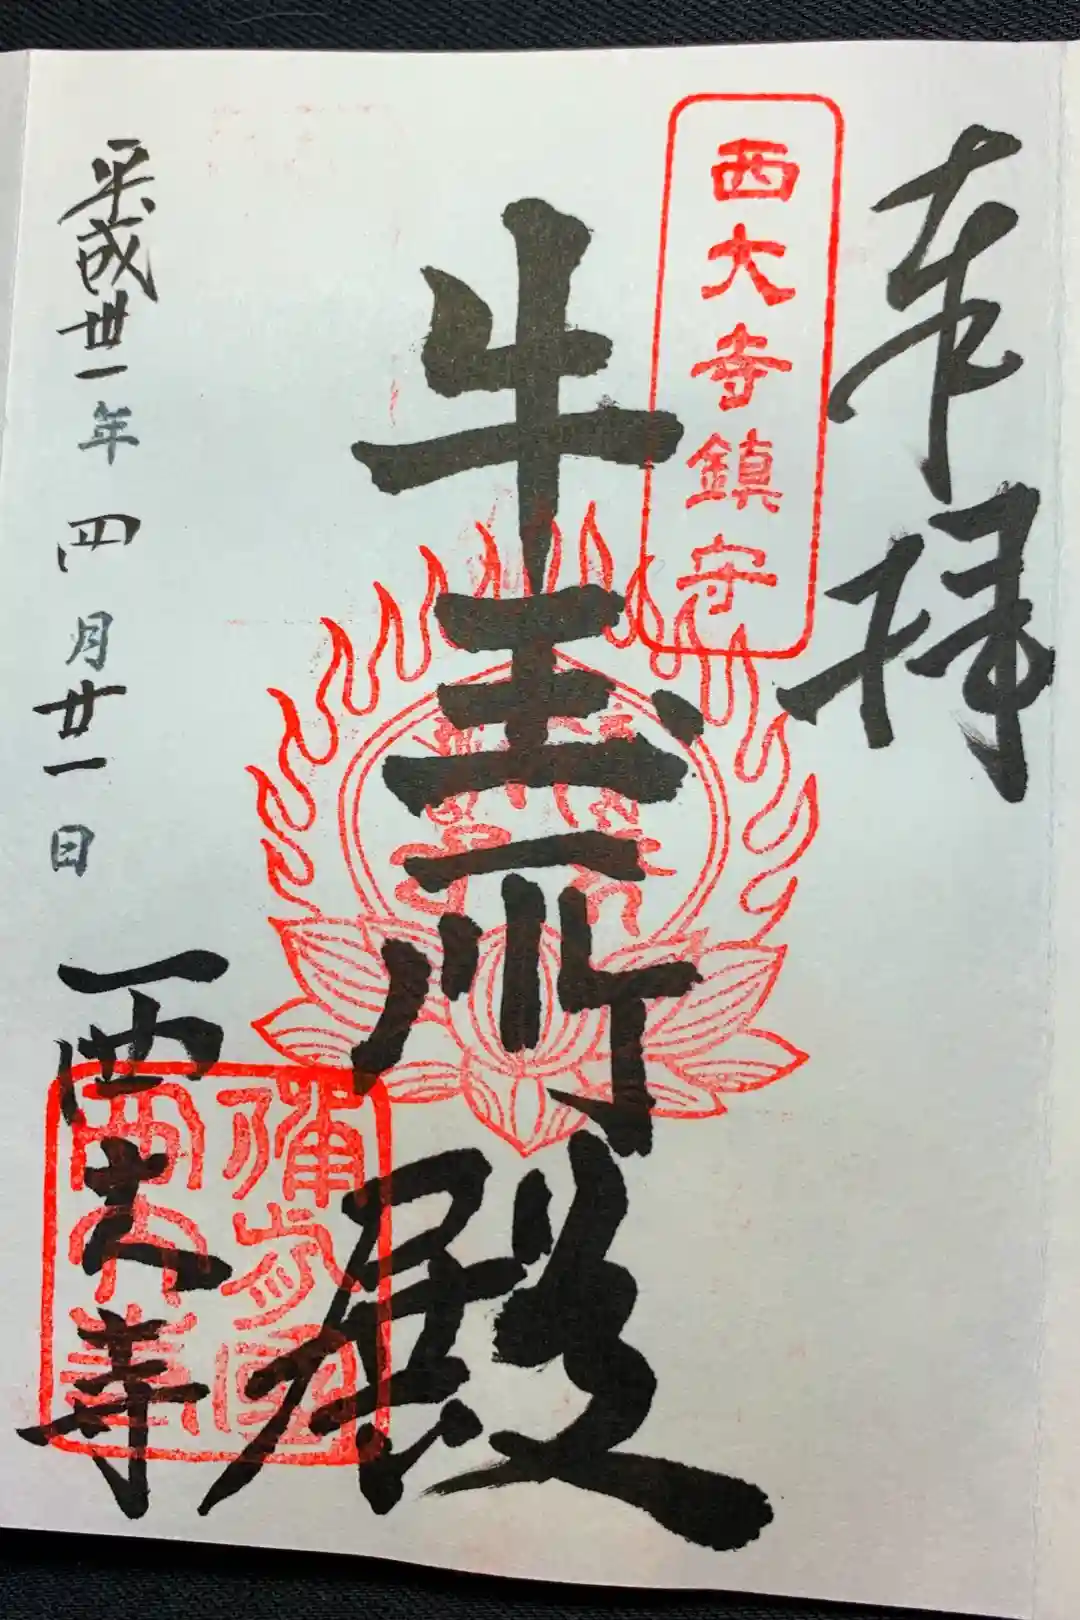 奉拝
西大寺鎮守
牛玉所殿
平成卅一年四月廿一日
西大寺